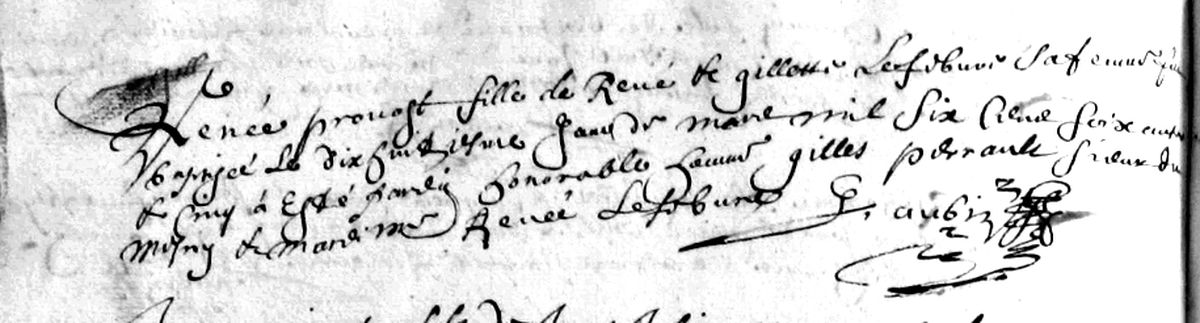 Renée provost fille de René & gillette Lefebure sa femme fut
baptizée le dix huictiesme jour de mars mil six cens soixante
& cinq a esté parein honorable homme gilles perrault sieur du
mesny & mareine Renée Lefebure
G, aubin